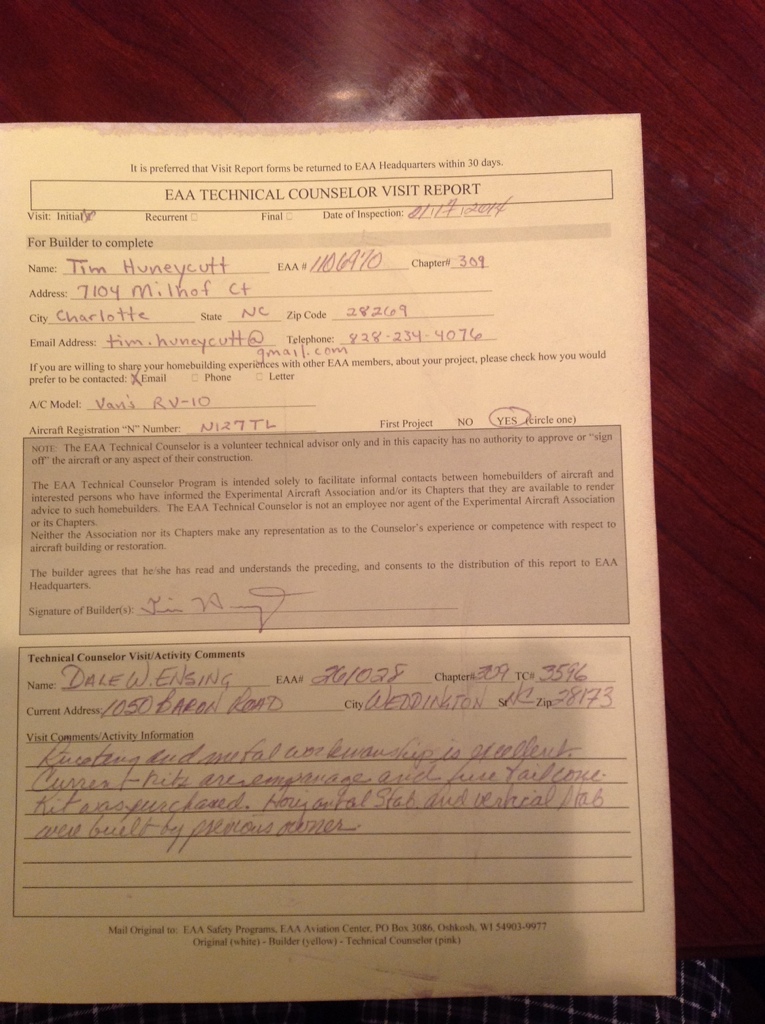 It is preferred that Visit Report forms be returned to EAA Headquarters within 30 days.
EAA TECHNICAL COUNSELOR VISIT REPORT
Visit: Initial Recurrent Final Date of Inspection: 01/17/2014
For Builder to complete
Name: Tim Huneycutt EAA # 1106970 Chapter# 309
Address: 7104 Milhof Ct
City Charlotte State NC Zip Code 28269
Email Address: tim.huneycutt@ Telephone: 828-234-4076
gmail.com
If you are willing to share your homebuilding experiences with other EAA members, about your project, please check how you would
prefer to be contacted: Email Phone Letter
A/C Model: Van's RV-10
Aircraft Registration "N" Number: N127TL First Project NO YES (circle one)
NOTE: The EAA Technical Counselor is a volunteer technical advisor only and in this capacity has no authority to approve or "sign
off" the aircraft or any aspect of their construction.
The EAA Technical Counselor Program is intended solely to facilitate informal contacts between homebuilders of aircraft and
interested persons who have informed the Experimental Aircraft Association and/or its Chapters that they are available to render
advice to such homebuilders. The EAA Technical Counselor is not an employee nor agent of the Experimental Aircraft Association
or its Chapters.
Neither the Association nor its Chapters make any representation as to the Counselor's experience or competence with respect to
aircraft building or restoration.
The builder agrees that he/she has read and understands the preceding, and consents to the distribution of this report to EAA
Headquarters.
Signature of Builder(s):
Technical Counselor Visit/Activity Comments
Name: DALE W. ENSING EAA# 261028 Chapter# 309 TC# 3596
Current Address: 1050 BARON ROAD City WEDDINGTON St NC Zip 28173
Visit Comments/Activity Information
and metal workmanship is excellent.
Current kits are empanage and fuse tailcone.
Kit was purchased. Horizontal Stab. and vertical stab
were built by previous owner.
Mail Original to: EAA Safety Programs, EAA Aviation Center, PO Box 3086, Oshkosh, WI 54903-9977
Original (white) - Builder (yellow) - Technical Counselor (pink)